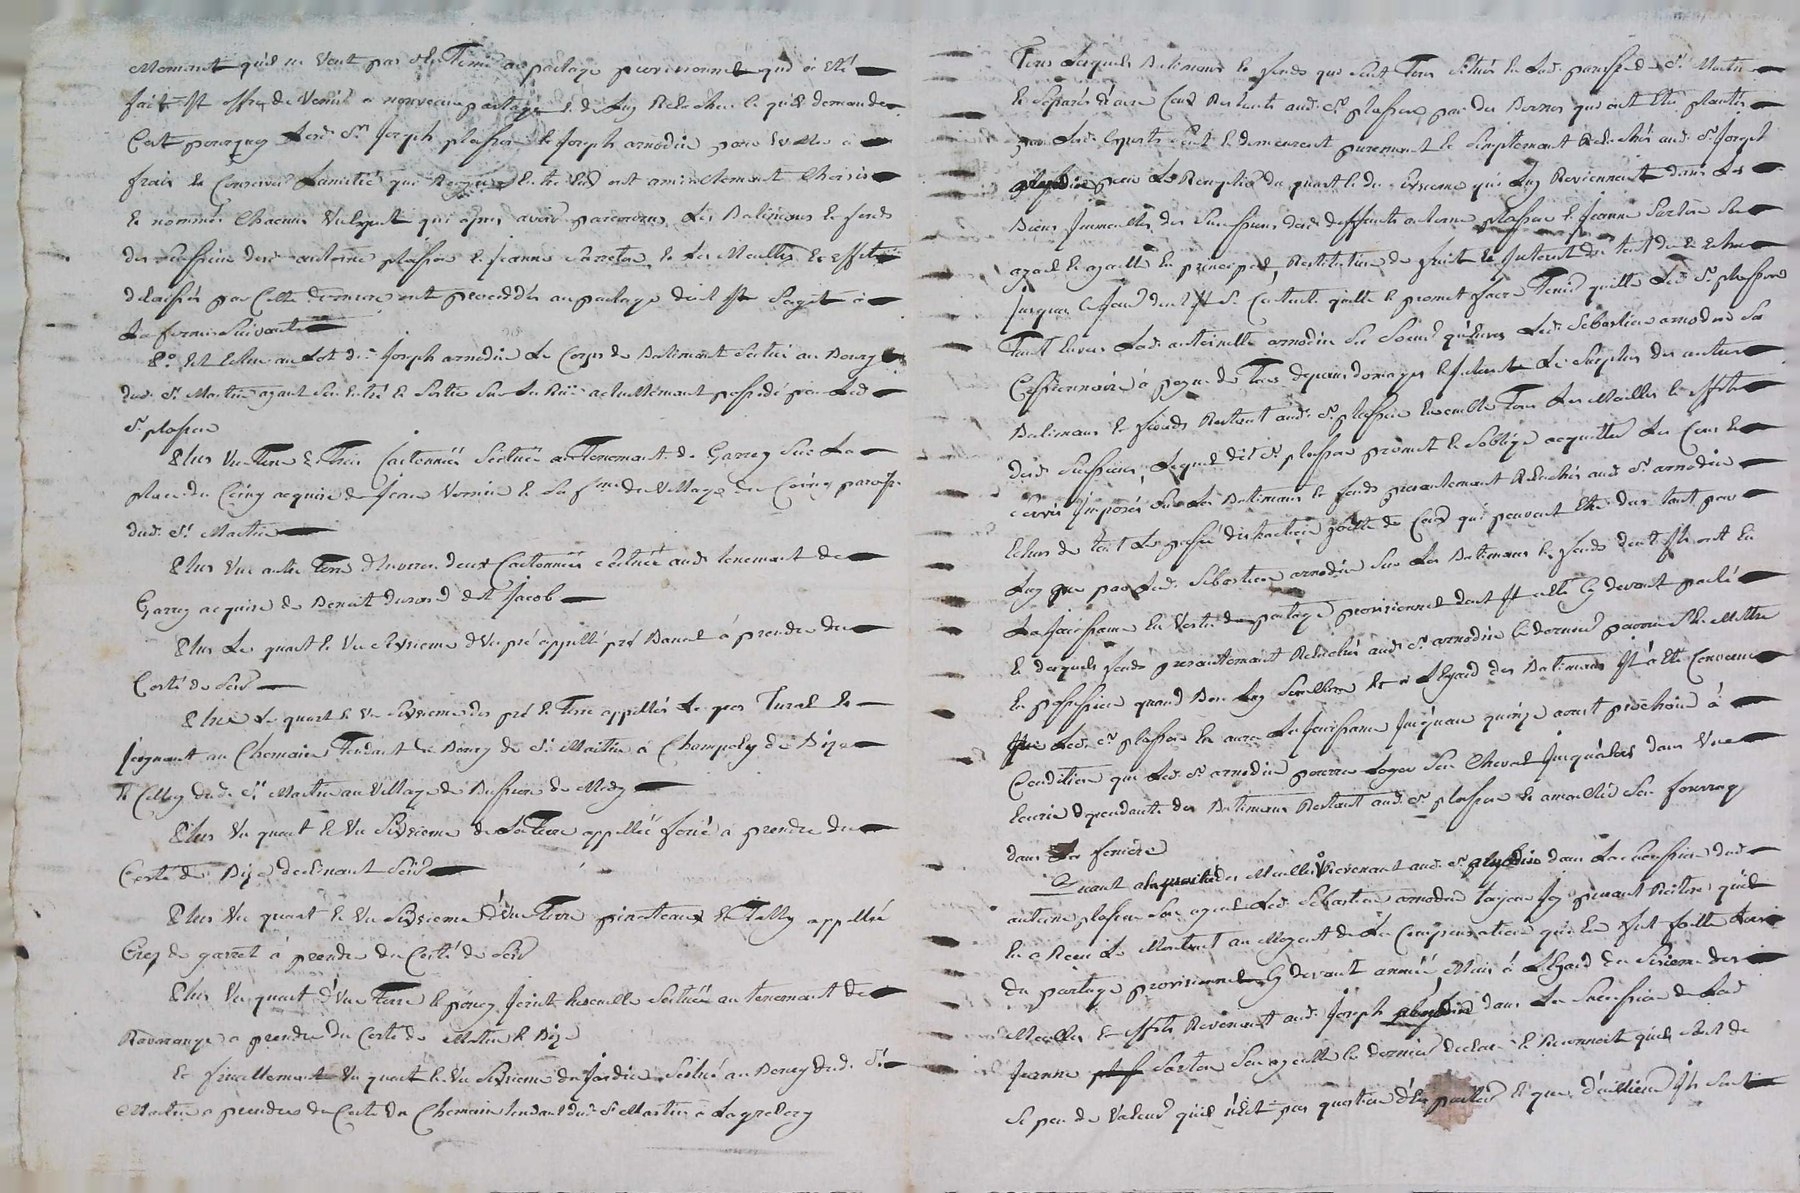 moment qu'il ne veut pas s'en tenir au partage provisionnel qui a été
fait Il offre de venir a nouveau partage et de luy Relacher ce qu'il demande
C'est pourquoy Led. Sr Joseph plasson et Joseph arnodin pour eviter a
frais et Conserver L'amitié qui Regne entre Eux ont amiablement Choisis
et nommés Chacun un Expert qui apres avoir parcourus Les Batimans et fonds
des successions desd. antoine plasson et jeanne Sarton et Les Meubles et Effets
delaissés par Cette derniere ont procedés au partage dont Il s'agit a
La forme suivante
1o. Est Echu au Lot dud. Joseph arnodin Le Corps de Batiment scitué au Bourg
dud. St. Martin ayant son entré et sortie sur La Rüe actuellement possedé par Led.
Sr. plasson
Plus une Terre de Trois Cartonnées scituée au Tenement de Garrey sur La
place du Coing acquise de Jean et sa fme du village du Coing paroisse
dud. St. Martin
Plus une autre Terre d'Environ deux Cartonnées scituée aud. tenement de
Garrey acquise de Benoit durand dit Jacob
Plus Le quart et un sixsieme d'un pré appellé pré Banal à prendre du
Costé de soir
Plus Le quart et un sixsieme des pré et Terre appellés Le gros Tural et
joignant au Chemain Tendant du Bourg de St. Martin à Champoly de Bize
et Celluy dud. St. Martin au village de Bussion de Midy
Plus un quart et un sixsieme de La Terre appellée forie à prendre du
Costé de Bize declinant soir
Plus un quart et un sixsieme d'une Terre pinateaux et Tally appellée
Crep de garret à prendre du Costé de soir
Plus un quart d'une Terre et joints Ensemble scituée au tenement de
Ravarange a prendre du Costé de Matin et Bize
et finallement un quart et un sixsieme du Jardin scitué au Bourg dud. St.
Martin a prendre du Costé du Chemain tendant dud. St Martin a
Tous Lesquels Batimans et fonds qui sont Tous scitués en Lad. paroisse de St. Martin
et separés d'avec Ceux Restants aud. Sr. plasson par des Bornes qui ont Eté plantés
par Lesd. Experts sont et demeurent purement et simplement Relachés aud. Sr. Joseph
pour Le Remplir du quart et du sixsieme qui Luy Reviennent dans Les
Biens Immeubles des successions desd. deffunts antoine plasson et Jeanne Sarton Ses
ayeul et ayeulle en principal, Restitution de fruit et Interest du tout due et echue
jusques a ce jour dont Il se Contente quitte et promet faire Tenir quitte Led. Sr. plasson
Tant envers Lad. antoinette arnodin Sa Soeur qu'envers Led. Sebastien arnodin Son
Cessionnaire à peyne de Tous depens domages et Interests Le surplus des autres
Batimans et fonds Restent aud. Sr. plasson Ensemble Tous Les Meubles et effets
desd. successions, Lequel dit Sr. plasson promet et s'oblige acquitter Les Cens et
servis Imposés sur Les Batimans et fonds presentement Relachés aud. Sr. arnodin
Echus de tout Le passé distraction faitte de Ceux qui peuvent Etre dus tant par
Luy que par Led. Sebastien arnodin sur Les Batimans et fonds dont Ils ont Eu
La joüissance En vertu du partage provisionnel dont Il a eté Cy devant parlé
et desquels fonds presentement Relachés aud. Sr. arnodin Ce dernier pourra se Mettre
En possession quand Bon Luy semblera et a L'egard des Batimans Il a eté Convenu
que Led. Sr. plasson En aura La joüissance jusqu'au quinze aoust prochain à
Condition que Led. Sr. arnodin pourra Loger son Cheval jusqu'alors dans une
Ecurie dependante des Batimans Restant aud. Sr. plasson et amasser son fourrage
dans La feniere
Quant a La partie des Meubles Revenant aud. Sr. dans La succession dud.
antoine plasson son ayeul Led. Sebastien arnodin Cy present declare qu'il
En a Reçu Le Montant au Moyent de La Compensation qui En fut faitte Lors
du partage provisionnel Cy devant annoncé Mais à L'egard du sixieme des
Meubles et effets Revenant aud. Joseph dans La succession de Lad.
Jeanne Sarton son ayeulle Ce dernier declare et Reconnoit qu'ils etoit de
si peu de valeur qu'il n'est pas question d'en parler et que d'aillieurs Ils sont